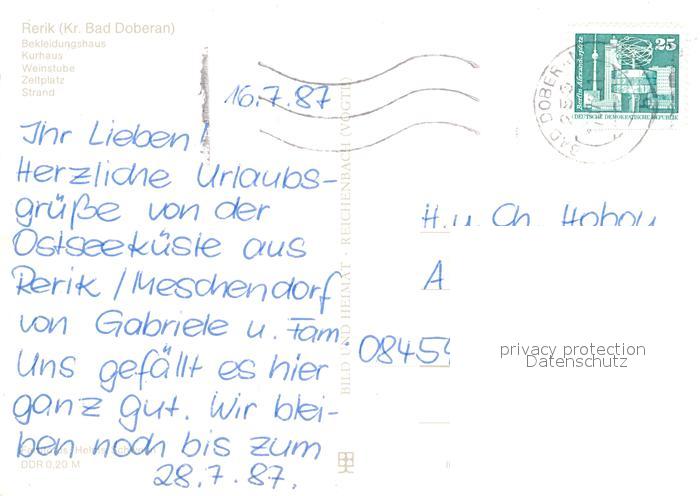 Rerik (Kr. Bad Doberan)
Bekleidungshaus
Kurhaus
Weinstube
Zeltplatz
Strand
16.7.87
Ihr Lieben!
Herzliche Urlaubs-
grüße von der
Ostseeküste aus
Rerik / Meschendorf
von Gabriele u. Fam.
Uns gefällt es hier
ganz gut. Wir blei-
ben noch bis zum
28.7.87.
DDR 0,20 M
BILD UND HEIMAT · REICHENBACH (VOGTL)
Berlin, Alexanderplatz
25
DEUTSCHE DEMOKRATISCHE REPUBLIK
BAD DOBERAN
H. u. Ch.
A
0845
privacy protection
Datenschutz